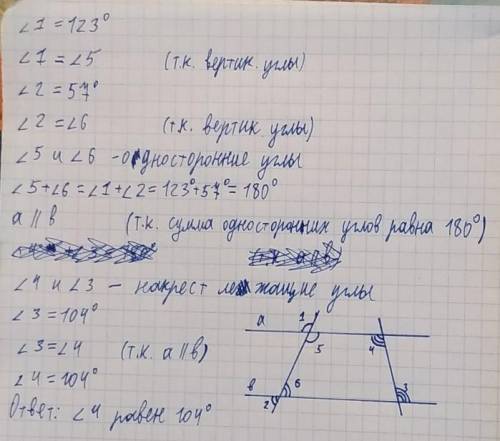 ∠1 = 123°
∠1 = ∠5 (т.к. вертик. углы)
∠2 = 57°
∠2 = ∠6 (т.к. вертик. углы)
∠5 и ∠6 - односторонние углы
∠5+∠6 = ∠1+∠2 = 123°+57° = 180°
a ∥ в (т.к. сумма односторонних углов равна 180°)
∠4 и ∠3 — накрест лежащие углы
∠3 = 104°
∠3 = ∠4 (т.к. a ∥ в)
∠4 = 104°
Ответ: ∠4 равен 104°
a 1 5 4
в 2 6 3